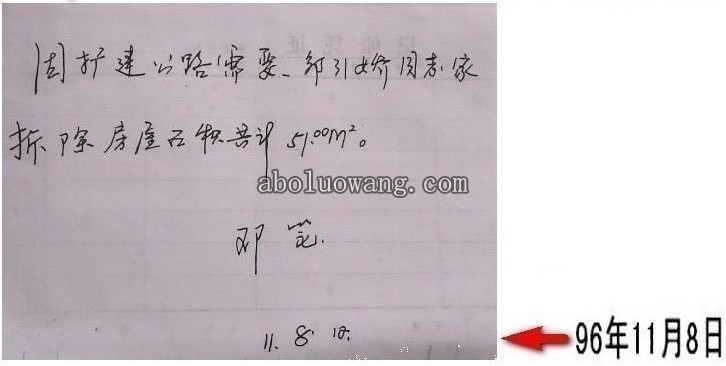 因扩建公路需要、邹引娇同志家
拆除房屋面积共计51.00m²。
aboluowang.com
邓
11. 8.
96年11月8日